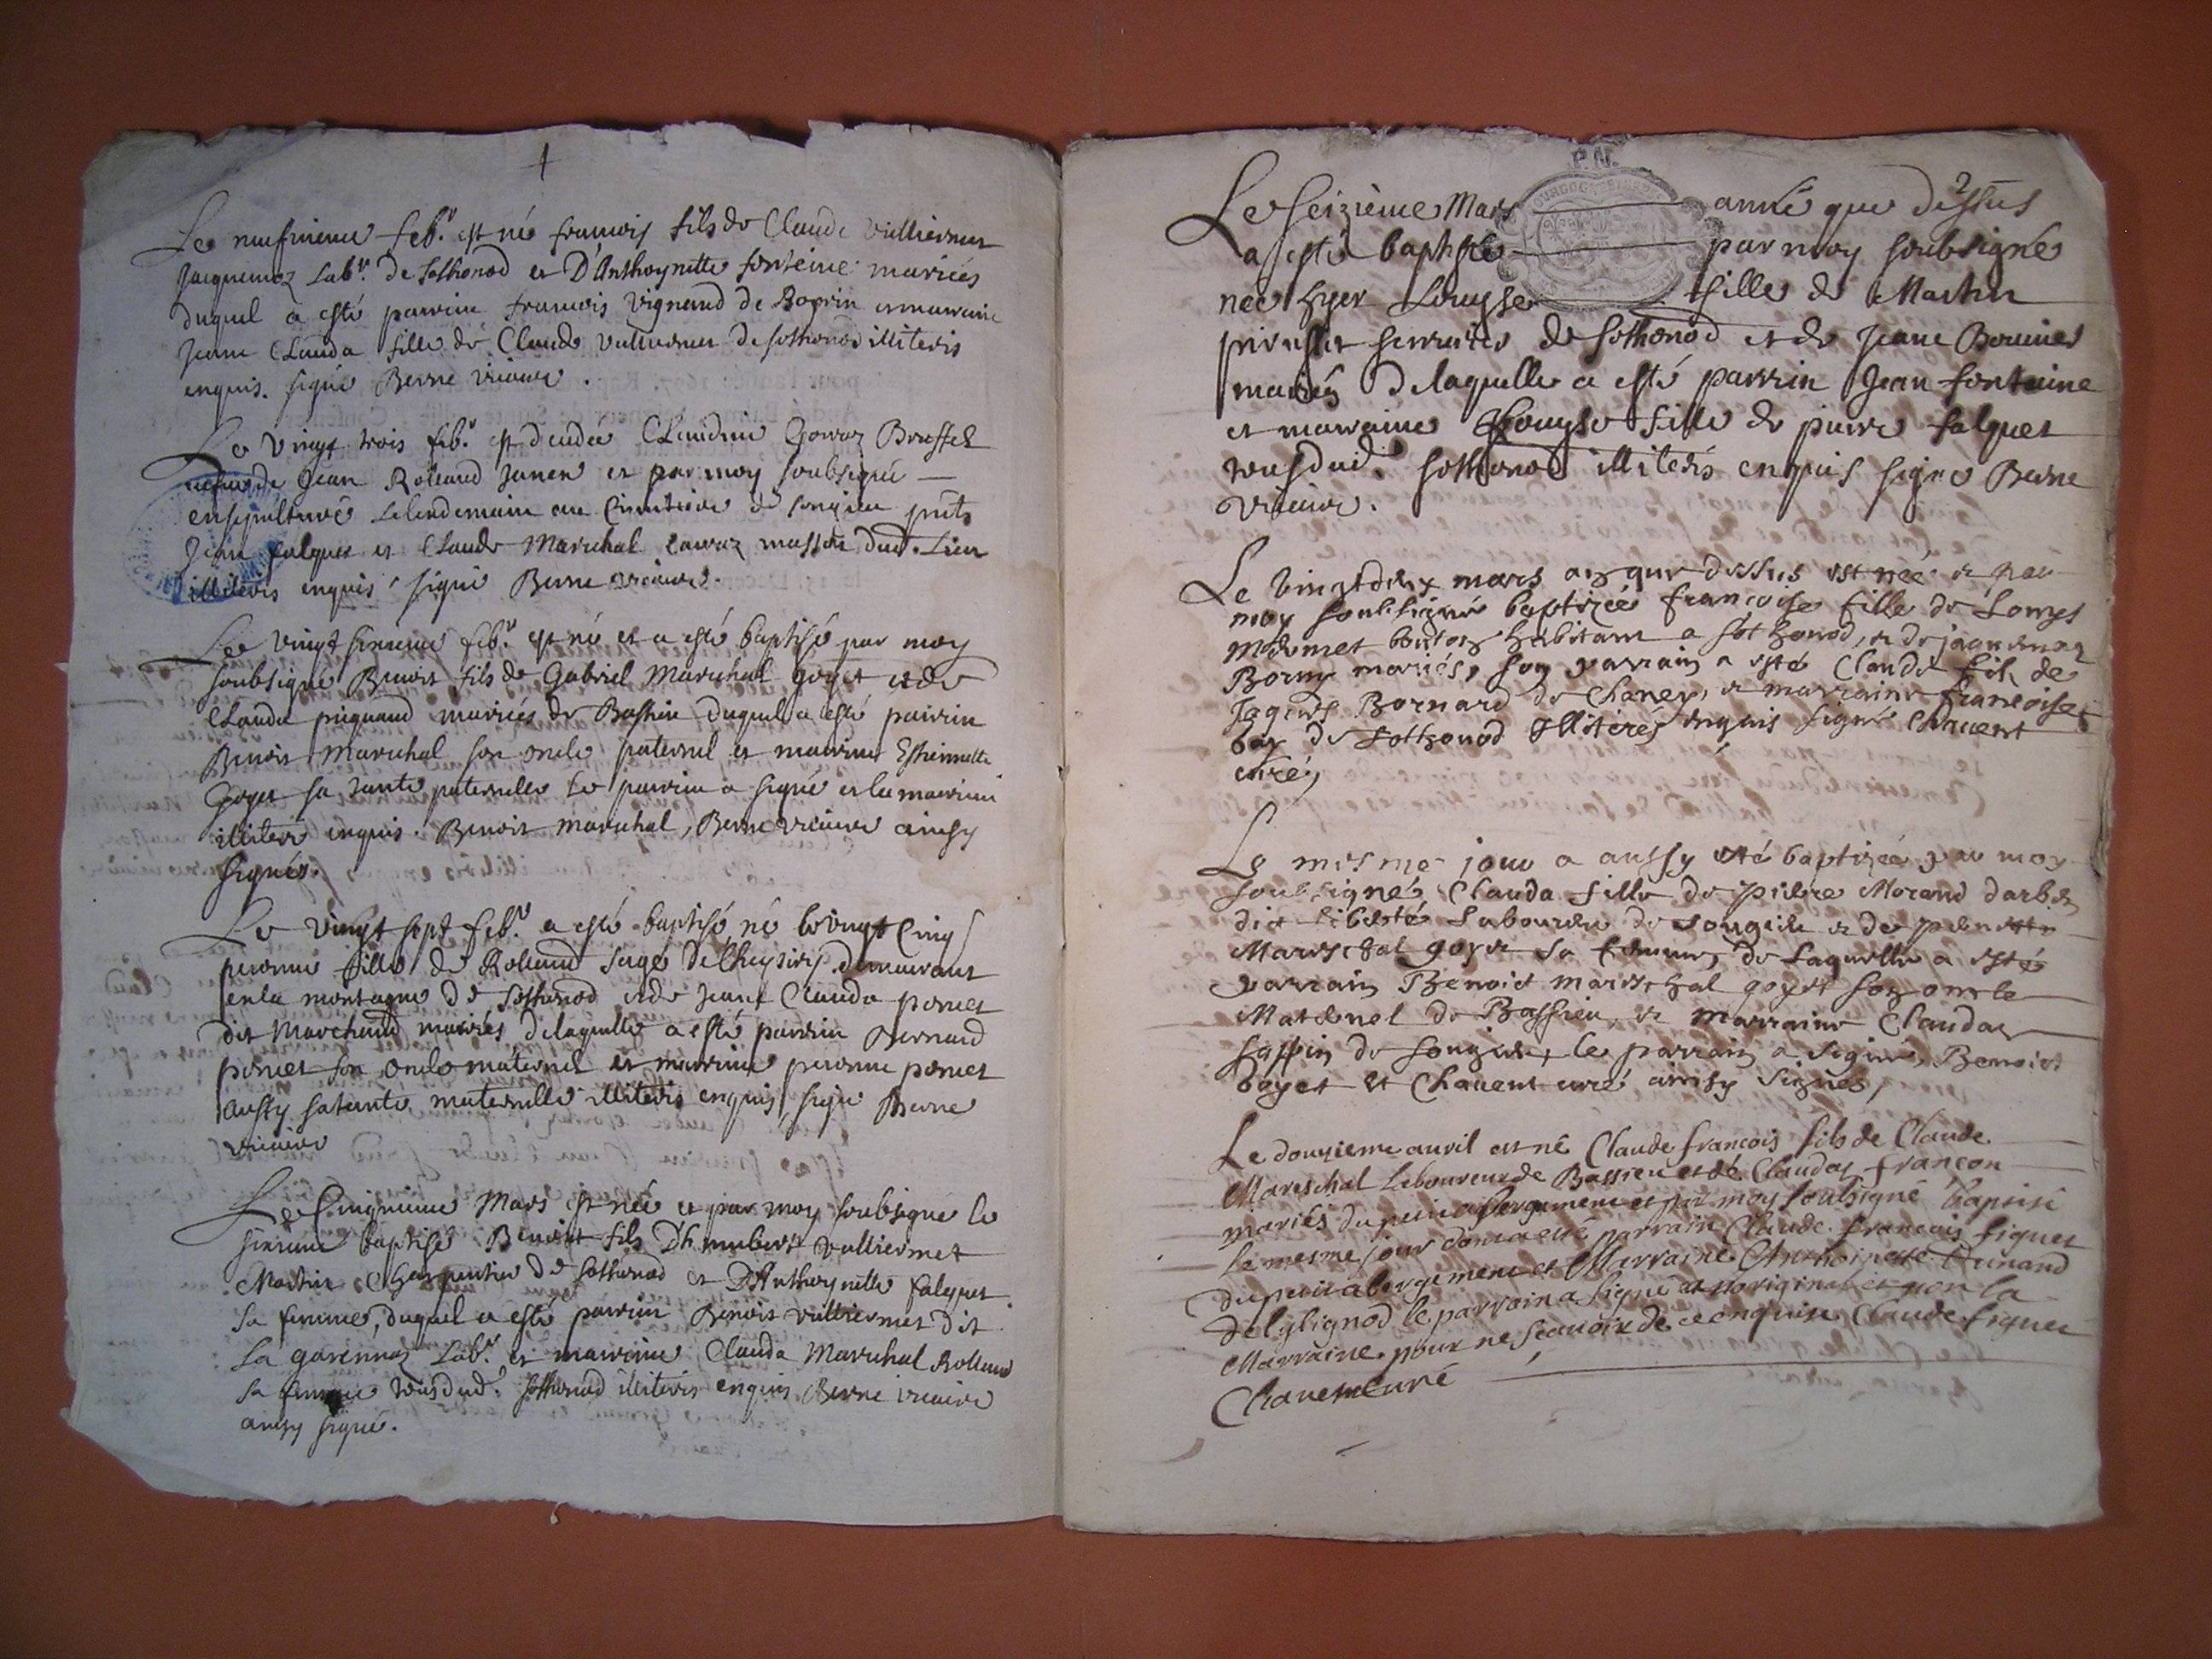 Le neufvieme feb.r est né francois fils de Claude Vulliermet
Jacquemoz Lab.r de Sothonod et D'Anthoynette fonteine mariés
duquel a esté parrin francois Vignand de et marraine
Jeane Clauda fille de Claude Vulliermet de sothonod illiterés
enquis. signé Berne vicaire.
Le vingt trois feb.r est decedée Claudine
Jean Rolland et par moy soubsigné
ensepulturé le lendemain au Cimitiere de songieu pnts
Jean falquet et Claude Marechal masson dud. Lieu
illiterés enquis signé Berne vicaire.
Le vingt sixieme feb.r est né et a esté baptisé par moy
soubsigné Benoit fils de Gabriel Marechal goyet et de
Clauda mariés de Bassieu duquel a esté parrin
Benoit Marechal son oncle paternel et marrine Estiennette
Goyet sa tante paternelle le parrin a signé et la marrine
illiteré enquis. Benoit marechal, Berne vicaire ainsy
signés.
Le vingt sept feb.r a esté baptisé né le vingt Cinq
peronne fille de Rolland demeurant
en la montagne de Sothonod et de Jeane Clauda pernet
dit Marchand mariés de laquelle a esté parrin Bernard
pernet son oncle maternel et marrine peronne pernet
aussy sa tante maternelle illiterés enquis, signé Berne
vicaire
Le Cinquieme Mars est née et par moy soubsigné le
sixieme baptisé Benoist fils D'humbert Vulliermet
Martin Charpentier de Sothonod et D'Anthoynette falquet
sa femme, duquel a esté parrin Benoit Vulliermet dit
la garennaz Lab.r et marrine Clauda Marechal Rolland
sa femme tous dud. Sothonod illiterés enquis Berne vicaire
ainsy signé.
P.N.
2
Le Seizieme Mars année que dessus
a esté baptisée par moy soubsigné
née hyer Louyse fille de Martin
serrurier de Sothonod et de Jeane
mariés de laquelle a esté parrin Jean fontaine
et marraine Louyse fille de pierre falquet
tous dud. Sothonod illiterés enquis signé Berne
vicaire.
Le vingt deux mars an que dessus est née et par
moy soubsigné baptizée françoise fille de Louys
habitant a Sothonod, et de Jaquemaz
mariés, son parrain a esté Claude fils de
Jaques Bornard de Chaney, et marraine françoise
de Sothonod Illiterés enquis signé Chavent
curé,
Le mesme jour a aussy esté baptizée par moy
soubsigné Clauda fille de pierre Morand
dit liberté Laboureur de Songieu et de pernette
Mareschal goyet sa femme, de laquelle a esté
parrain Benoict mareschal goyet son oncle
Maternel de Bassieu, et marraine Claudaz
de Songieu, le parrain a signé, Benoict
goyet et Chavent curé ainsy signés,
Le douzieme avril est né Claude francois fils de Claude
Mareschal Laboureur de Bassieu et de Claudaz françon
mariés du petit abergement et par moy soubsigné baptisé
le mesme jour dont a esté parrain Claude francois figuet
du petit abergement et Marraine Anthoinette Dunand
de lylignod le parrain a signé a l'original et non la
Marraine pour ne scavoir de ce enquise Claude figuet
Chavent curé